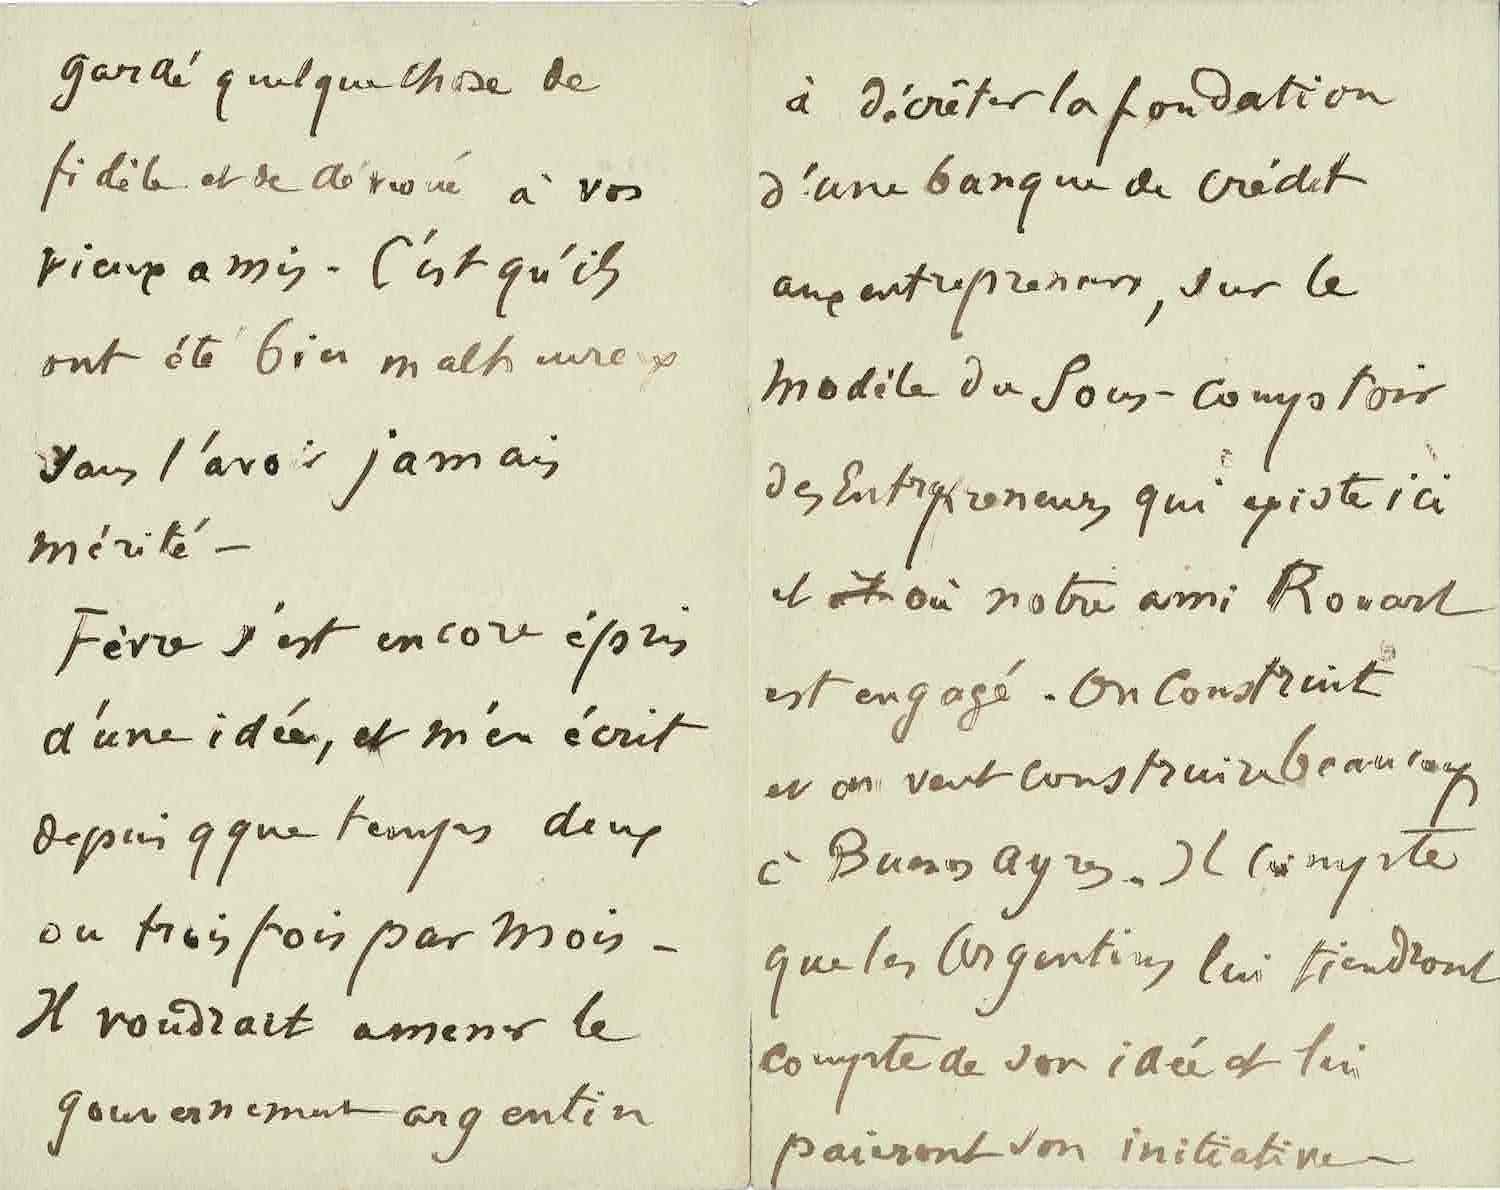 gardé quelque chose de
fidèle et de dévoué à vos
vieux amis. C'est qu'ils
ont été bien malheureux
sans l'avoir jamais
mérité —
Fèvre s'est encore épris
d'une idée, et m'en écrit
depuis qque temps deux
ou trois fois par mois —
Il voudrait amener le
gouvernement argentin
à décrêter la fondation
d'une banque de crédit
aux entrepreneurs, sur le
modèle du Sous-Comptoir
des Entrepreneurs qui existe ici
et où notre ami Rouart
est engagé. On construit
et on veut construire beaucoup
à Buenos Ayres. Il compte
que les Argentins lui tiendront
compte de son idée et lui
paieront son initiative —